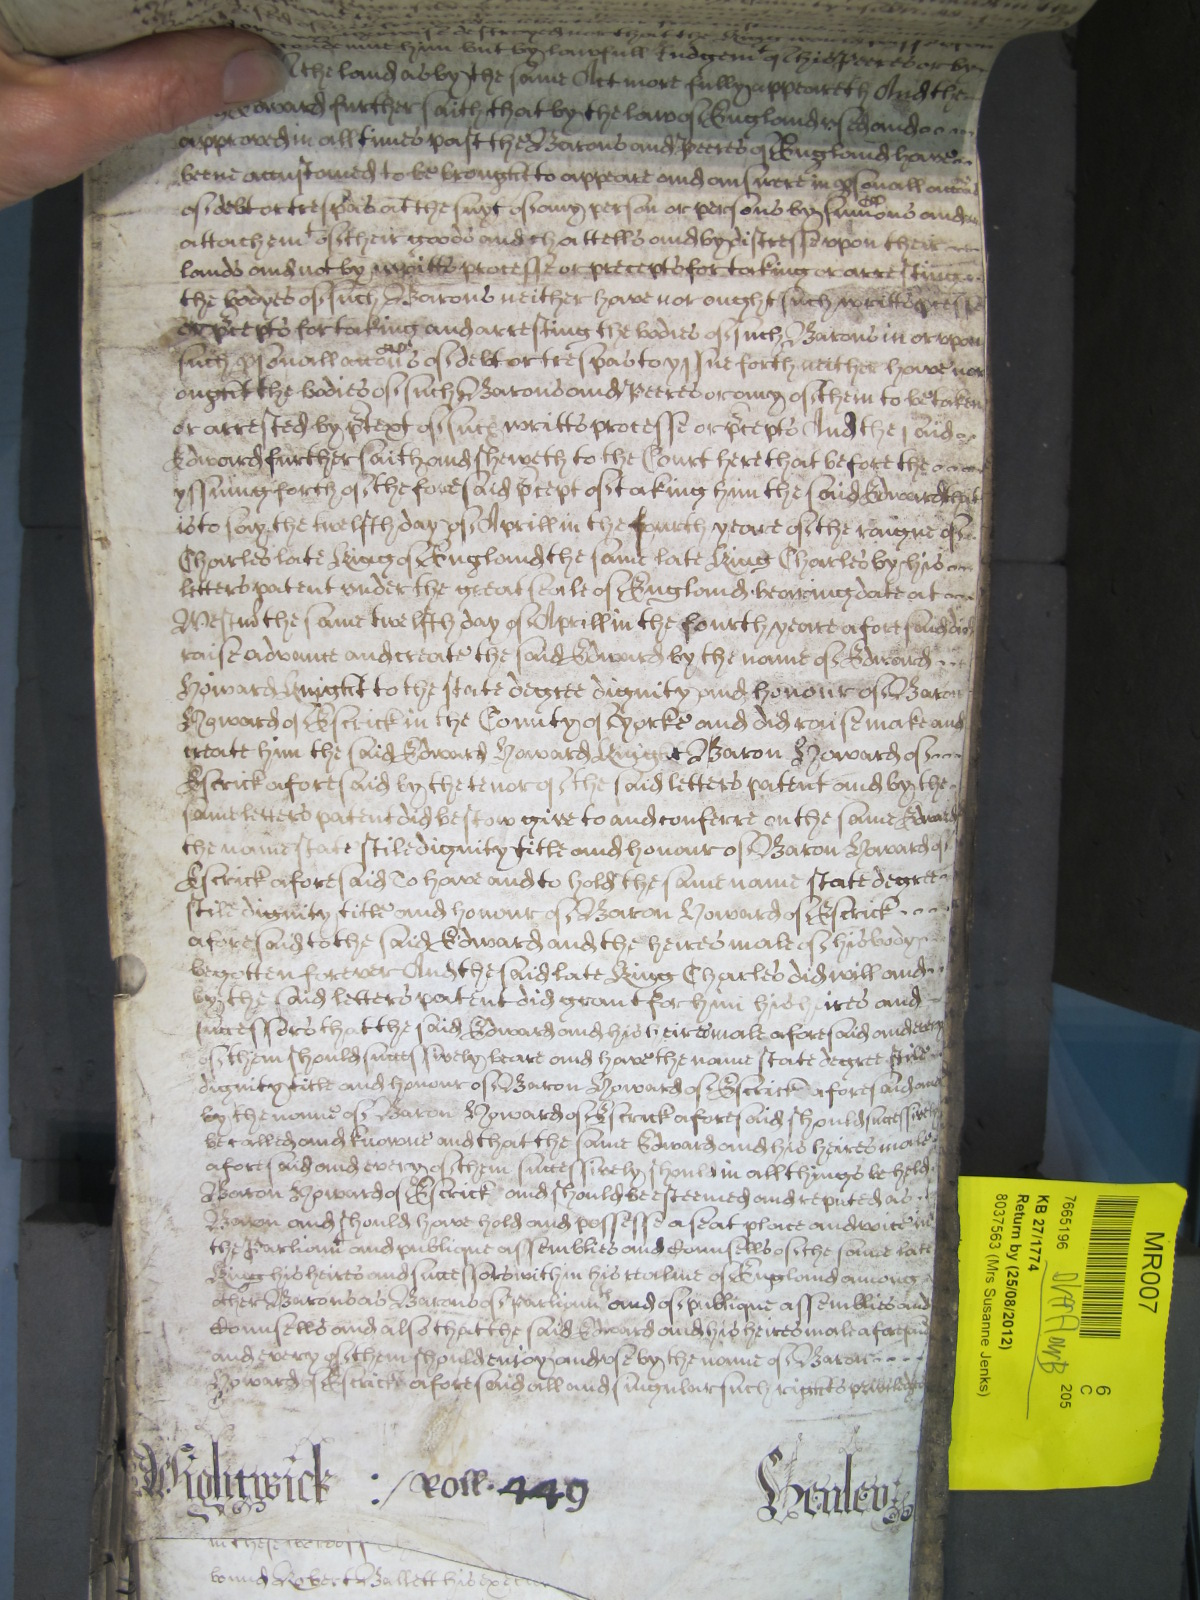 destroyed nor that the King
condemne him but by lawfull Judgemt of his Peeres or by
the land as by the same Act more fully appeareth And the
Edward further saith that by the laws of England used and
approved in all times past the Barons and Peeres of England have
beene accustomed to be brought to appeare and answere in psonall accons
of debt or trespas att the suyt of any person or persons by sumons and
attachemt of their goods and chattells and by distresse upon their
lands and not by writts processe or precepts for taking or arresting
the bodyes of such Barons neither have nor ought such writts pcesse
or pcepts for taking and arresting the bodies of such Barons in or upon
such psonall accons of debt or trespas to yssue forth neither have nor
ought the bodies of such Barons and Peeres or any of them to be taken
or arrested by ptext of such writts processe or pcepts And the said
Edward further saith and sheweth to the Court here that before the
yssuing forth of the foresaid pcept of taking him the said Edward that
is to say the twelfth day of Aprill in the fourth yeare of the raigne of
Charles late King of England the same late King Charles by his
letters patent under the great seale of England bearing date at
Westm the same twelfth day of Aprill in the fourth yeare aforesaid did
raise advance and create the said Edward by the name of Edward
Howard Knight to the state degree dignity and honour of Baron
Howard of Escrick in the County of Yorke and did raise make and
create him the said Edward Howard Knight Baron Howard of
Escrick aforesaid by the tenor of the said letters patent and by the
same letters patent did bestow give to and conferre on the same Edward
the name state stile dignity title and honour of Baron Howard of
Escrick aforesaid To have and to hold the same name state degree
stile dignity title and honour of Baron Howard of Escrick
aforesaid to the said Edward and the heires male of his body
begotten forever And the said late King Charles did will and
by the said letters patent did grant for him his heires and
successors that the said Edward and his heires male aforesaid and every
of them should successively beare and have the name state degree stile
dignity title and honour of Baron Howard of Escrick aforesaid and
by the name of Baron Howard of Escrick aforesaid should successively
be called and knowne and that the same Edward and his heires male
aforesaid and every of them successively should in all things be held
Baron Howard of Escrick and should be esteemed and reputed as
Baron and should have hold and possesse a seat place and voice in
the Parliamt and publique assemblies and Counsells of the same late
King his heires and successors within his realme of England among
other Barons as Barons of Parliamt and of publique assemblies and
Counsells and also that the said Edward and his heires male aforesaid
and every of them should enjoy and use by the name of Baron
Howard of Escrick aforesaid all and singular such rights priviledges
Wightwick :/ Roll. 449 Henley
Robert Ballett his
MR007
6
C
205
7665196
KB 27/1774
Return by (25/08/2012)
8037563 (Mrs Susanne Jenks)